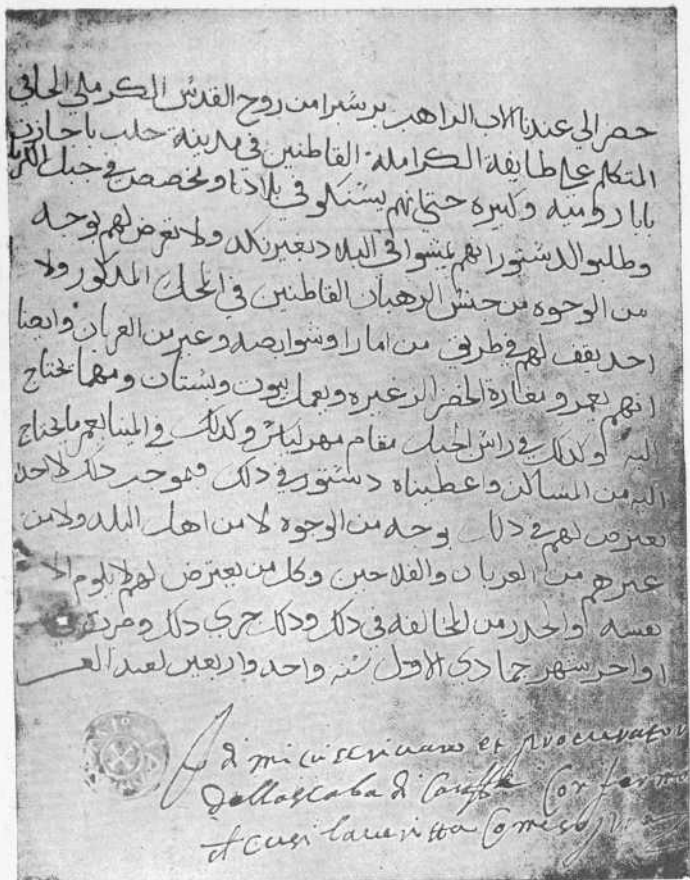 حضر الي عندنا الاب الراهب برشبرا من روح القدس الكرملي الحافي
المتكلم علي طايفة الكراملة القاطنين في مدينة حلب باجازت
بابا رومية وكبيره حتي انهم يستكو في بلادنا ومخصص في جبل الكرمل
وطلبو الدستور انهم يمشوا في البلاد بغير نكد ولا تعرض لهم بوجه
من الوجوه من جنس الرهبان القاطنين في المحل المذكور ولا
احد يقف لهم في طريق من امارا وشوابصه وغير من العربان وايضا
انهم يعمرو مغارة الخضر الزغيره ويعمل بيوت وبستان ومهما يحتاج
اليه وكدلك في راس الجبل مقام مهر الياس وكدلك في المينا يعمر ما يحتاج
اليه من المساكن واعطيناه دستور في دلك فموجب دلك لا احد
يعترض لهم في دلك بوجه من الوجوه لا من اهل البلد ولا من
غيرهم من العربان والفلاحين وكل من يعترض لهم لا يلوم الا
نفسه والحدر من المخالفه في دلك ودلك جرى دلك وحرر في
اواخر شهر جمادي الاول سنه واحد واربعين بعد الف
di mi cuscrivano et procurator
della scala di Caiffa Confermo